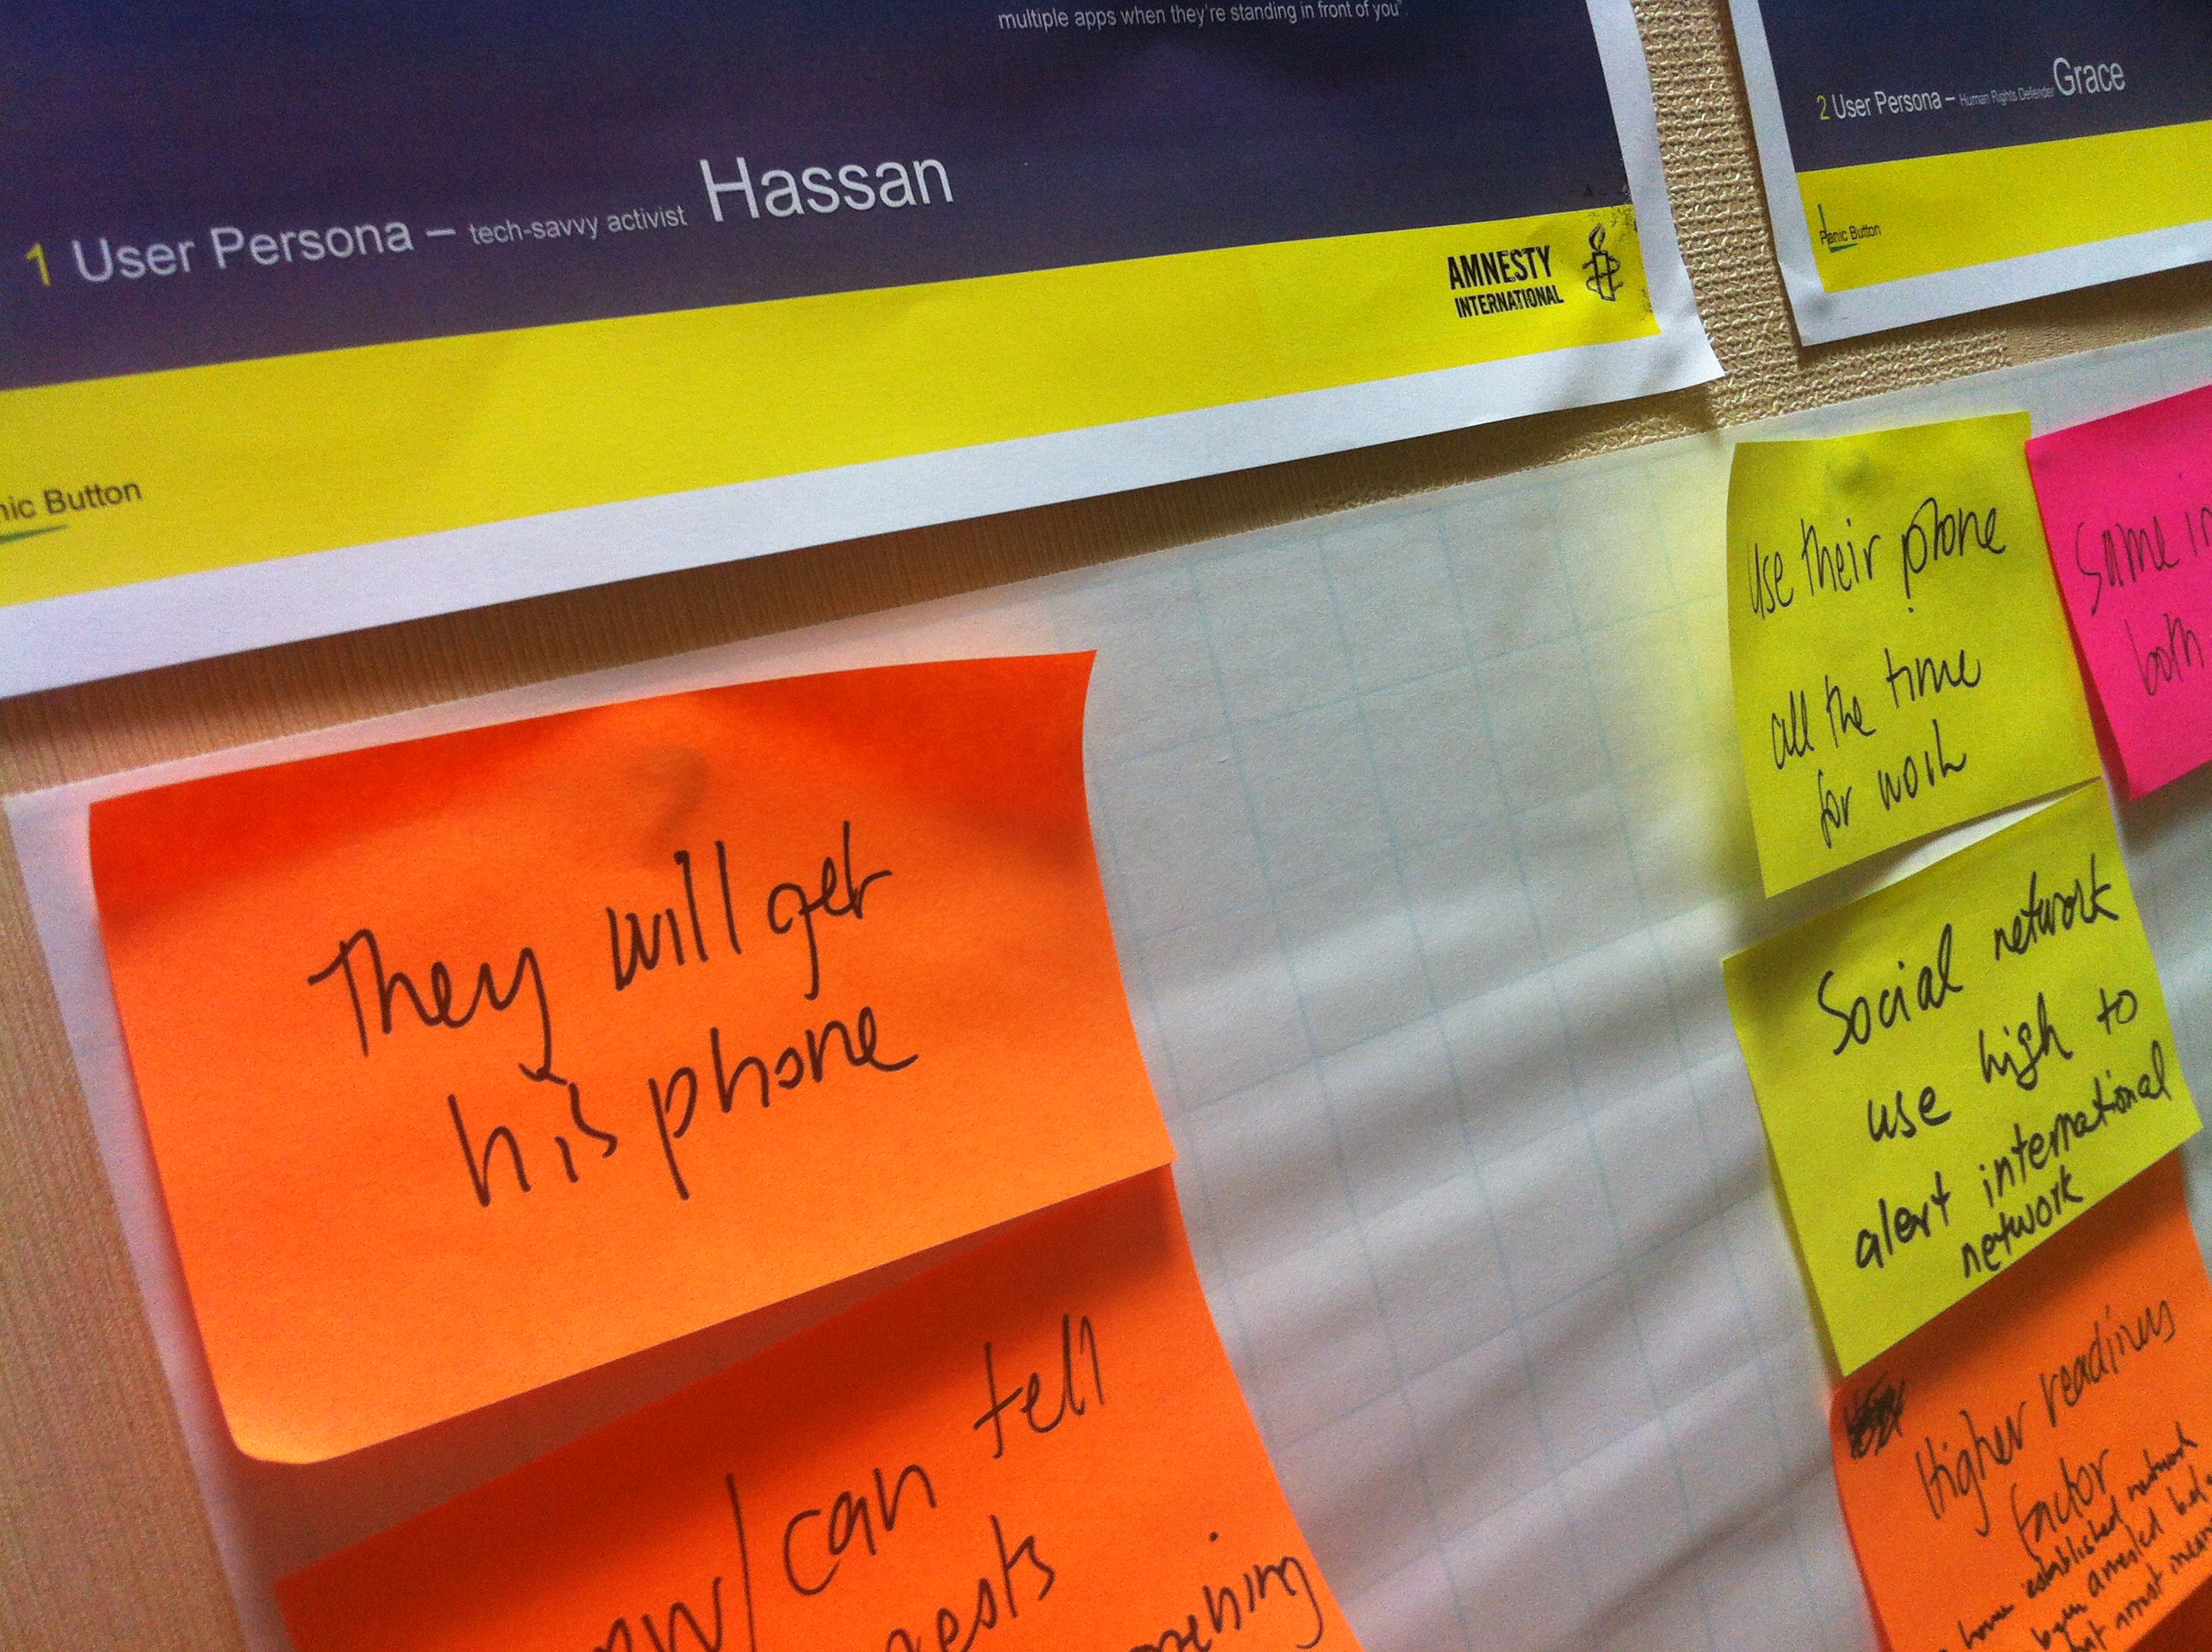 multiple apps when they're standing in front of you".
1 User Persona – tech-savvy activist Hassan
AMNESTY
INTERNATIONAL
nic Button
2 User Persona – Human Rights Defender Grace
Panic Button
They will get
his phone
/can tell
Use their phone
all the time
for work
Same in
both
Social network
use high to
alert international
network
Higher readiness
factor
have established network
been arrested
arrest